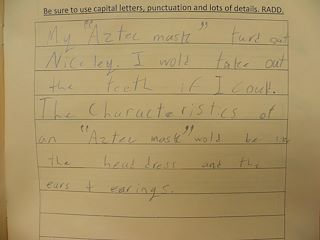 Be sure to use capital letters, punctuation and lots of details. RADD.
My "Aztec mask" turd out
Niceley. I wold take out
the teeth if I coud.
The Characteristics of
an "Aztec mask" wold be
the head dress and the
ears + earings.